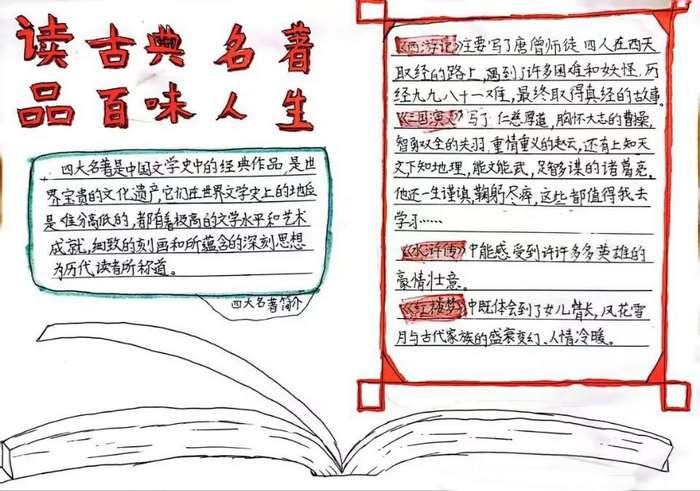 读古典名著
品百味人生
四大名著是中国文学史中的经典作品,是世
界宝贵的文化遗产,它们在世界文学史上的地位
是难分高低的,都有着极高的文学水平和艺术
成就,细致的刻画和所蕴含的深刻思想
为历代读者所称道。
四大名著简介
《西游记》主要写了唐僧师徒四人在西天
取经的路上,遇到了许多困难和妖怪,历
经九九八十一难,最终取得真经的故事。
《三国演义》写了仁慈厚道,胸怀大志的曹操,
智勇双全的关羽.重情重义的赵云,还有上知天
文下知地理,能文能武,足智多谋的诸葛亮,
他还一生谨慎,鞠躬尽瘁,这些都值得我去
学习……
《水浒传》中能感受到许许多多英雄的
豪情壮意。
《红楼梦》中既体会到了女儿情长,风花雪
月与古代家族的盛衰变幻、人情冷暖。